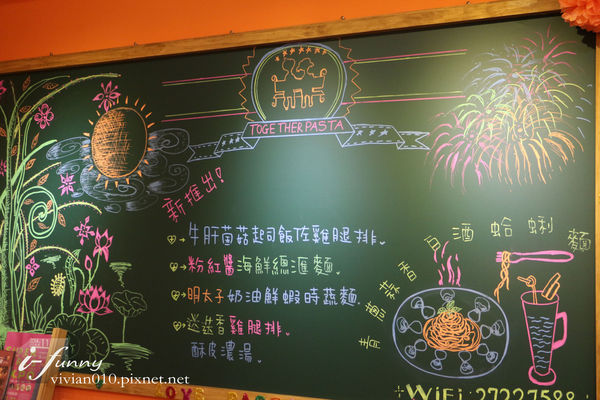 TOGETHER PASTA
新推出!
牛肝菌菇起司飯佐雞腿排.
粉紅醬海鮮總滙麵.
明太子奶油鮮蝦時蔬麵.
迷迭香雞腿排.
酥皮濃湯.
青醬蒜香白酒蛤蜊麵
WiFi:27227588
i-funny
vivian010.pixnet.net